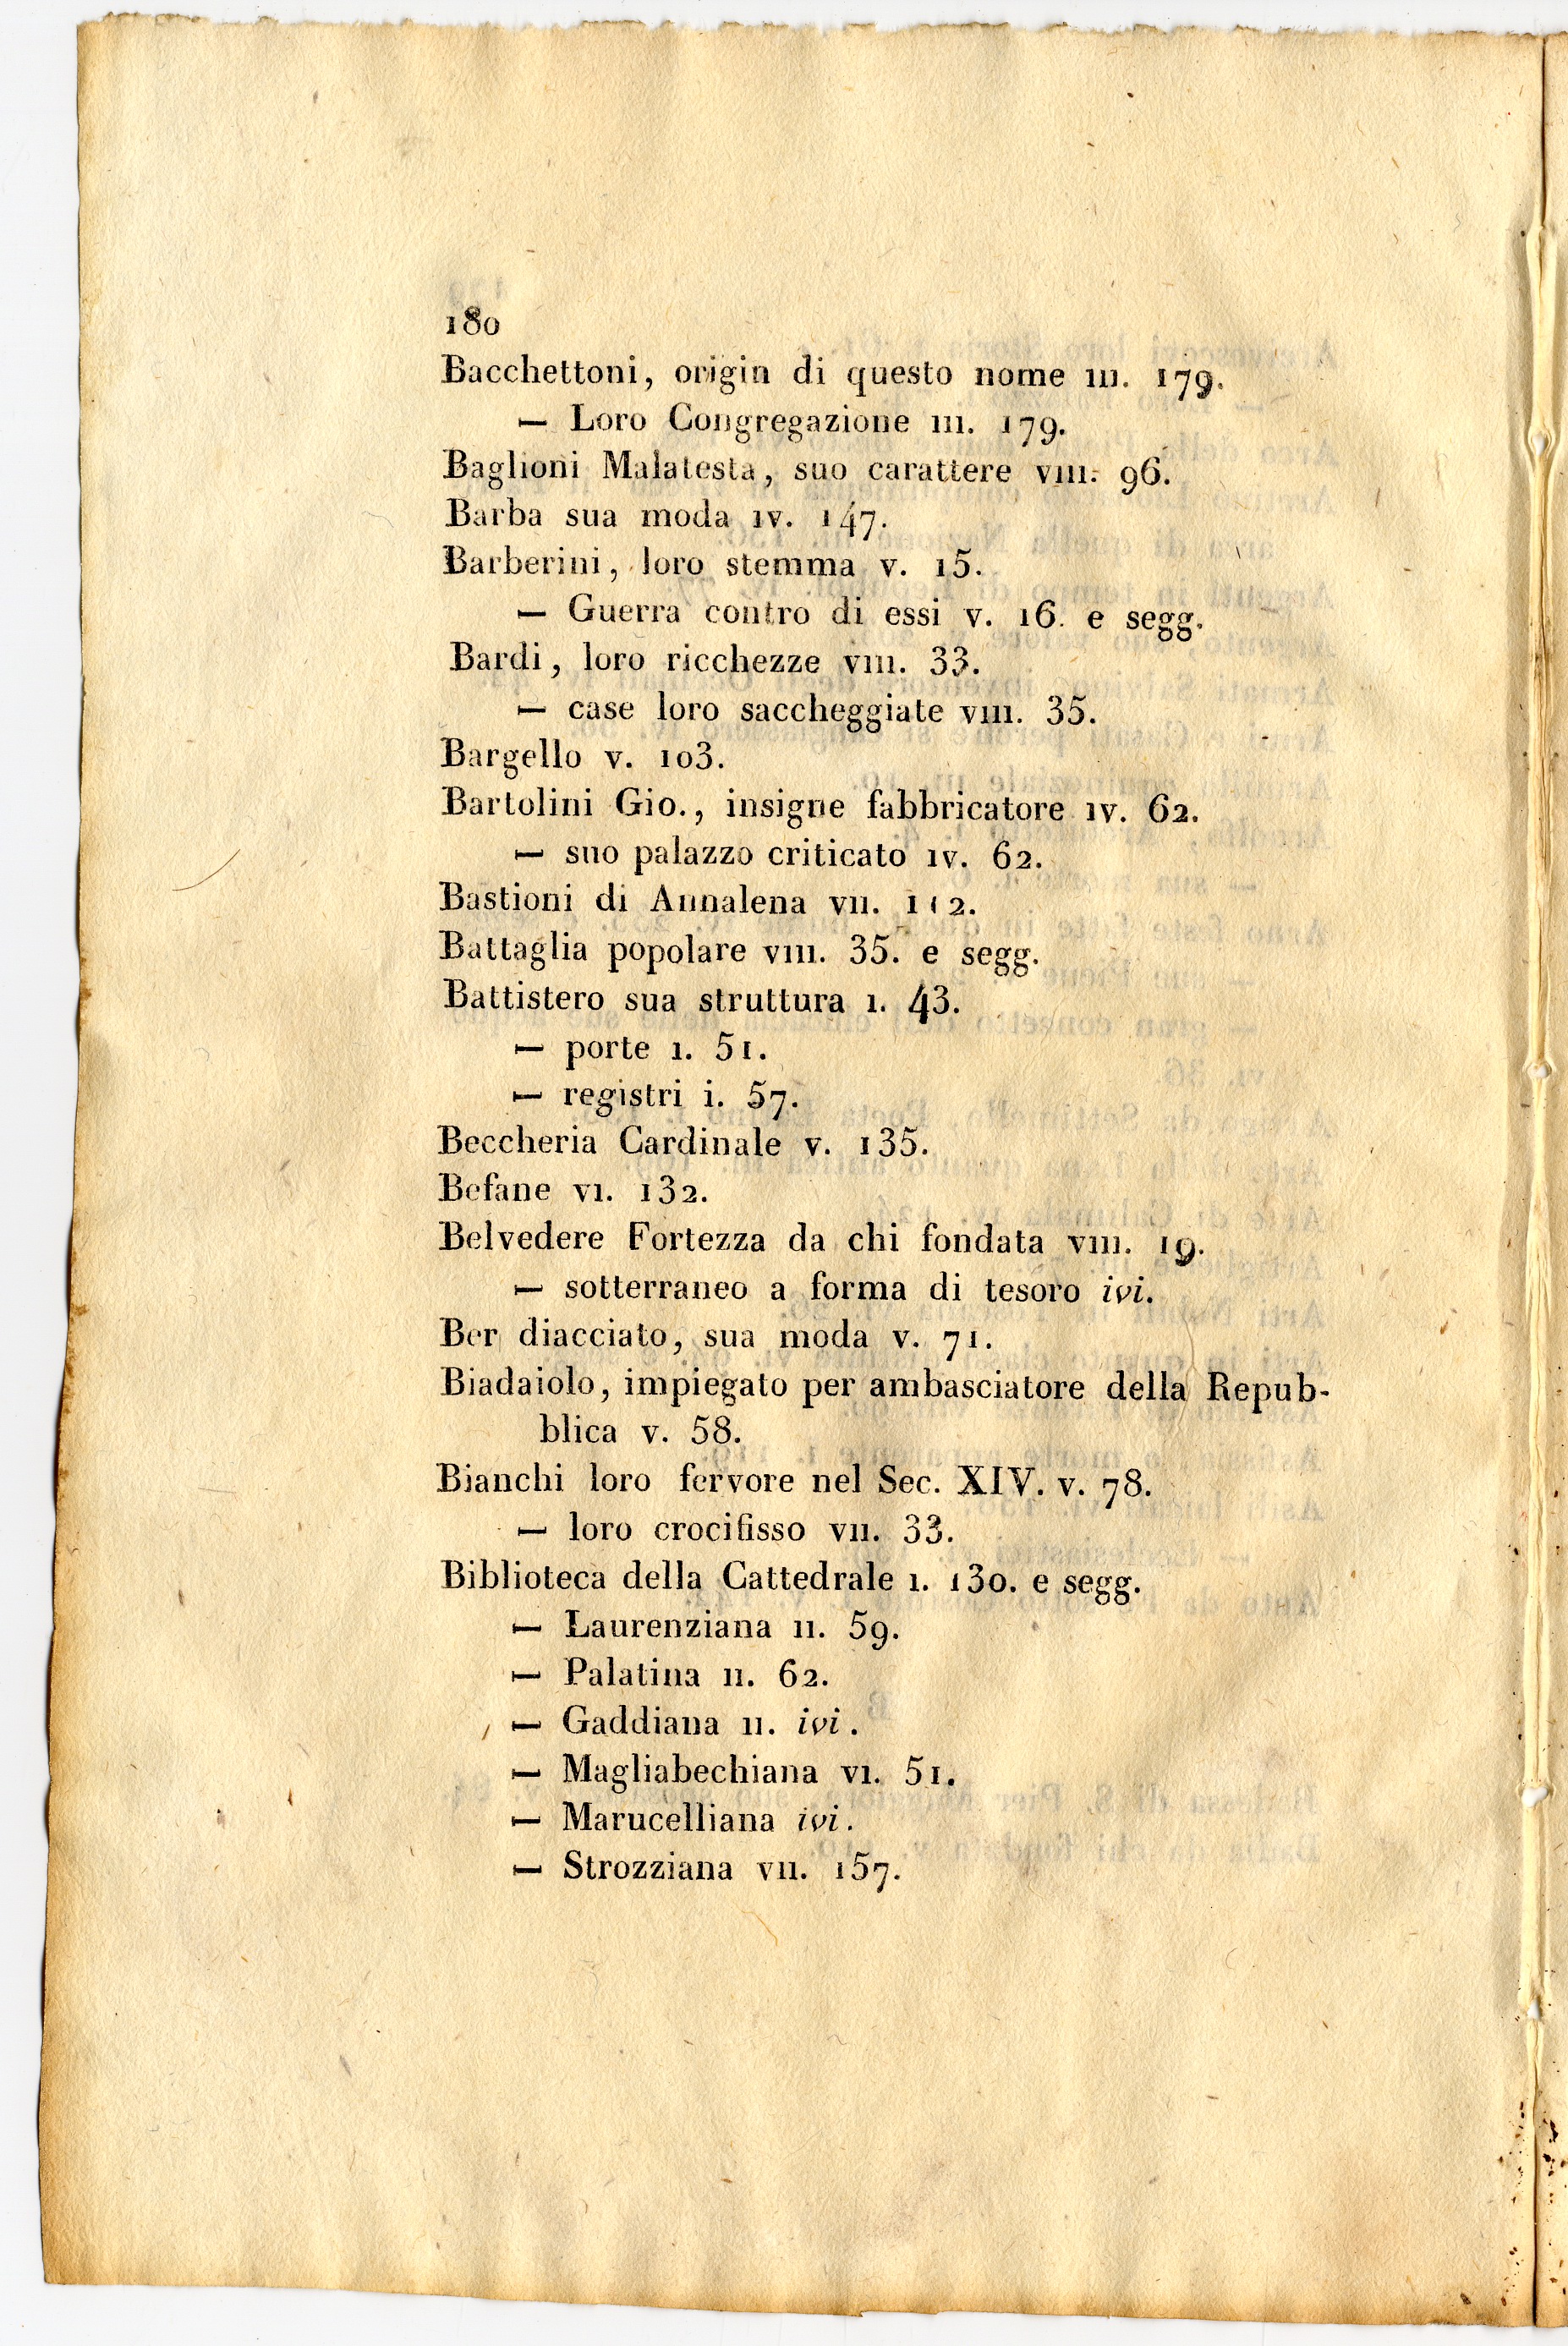 180
Bacchettoni, origin di questo nome III. 179.
— Loro Congregazione III. 179.
Baglioni Malatesta, suo carattere VIII. 96.
Barba sua moda IV. 147.
Barberini, loro stemma V. 15.
— Guerra contro di essi V. 16. e segg.
Bardi, loro ricchezze VIII. 33.
— case loro saccheggiate VIII. 35.
Bargello V. 103.
Bartolini Gio., insigne fabbricatore IV. 62.
— suo palazzo criticato IV. 62.
Bastioni di Annalena VII. 112.
Battaglia popolare VIII. 35. e segg.
Battistero sua struttura I. 43.
— porte I. 51.
— registri i. 57.
Beccheria Cardinale V. 135.
Befane VI. 132.
Belvedere Fortezza da chi fondata VIII. 19.
— sotterraneo a forma di tesoro ivi.
Ber diacciato, sua moda V. 71.
Biadaiolo, impiegato per ambasciatore della Repub-
blica V. 58.
Bianchi loro fervore nel Sec. XIV. V. 78.
— loro crocifisso VII. 33.
Biblioteca della Cattedrale I. 130. e segg.
— Laurenziana II. 59.
— Palatina II. 62.
— Gaddiana II. ivi.
— Magliabechiana VI. 51.
— Marucelliana ivi.
— Strozziana VII. 157.